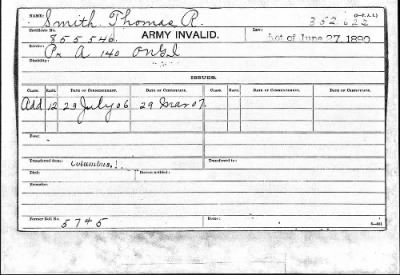 NAME: Smith Thomas R.
Certificate No. 855546. ARMY INVALID. Law: Act of June 27, 1890
Service: Pr. A 140
Disability:
ISSUES.
CLASS. RATE. DATE OF COMMENCEMENT. DATE OF CERTIFICATE. CLASS. RATE. DATE OF COMMENCEMENT. DATE OF CERTIFICATE.
Add 12 23 July 06 29 Mar 07
Transferred from Columbus.
Died:
Remarks:
Former Roll No. 5745 Home: